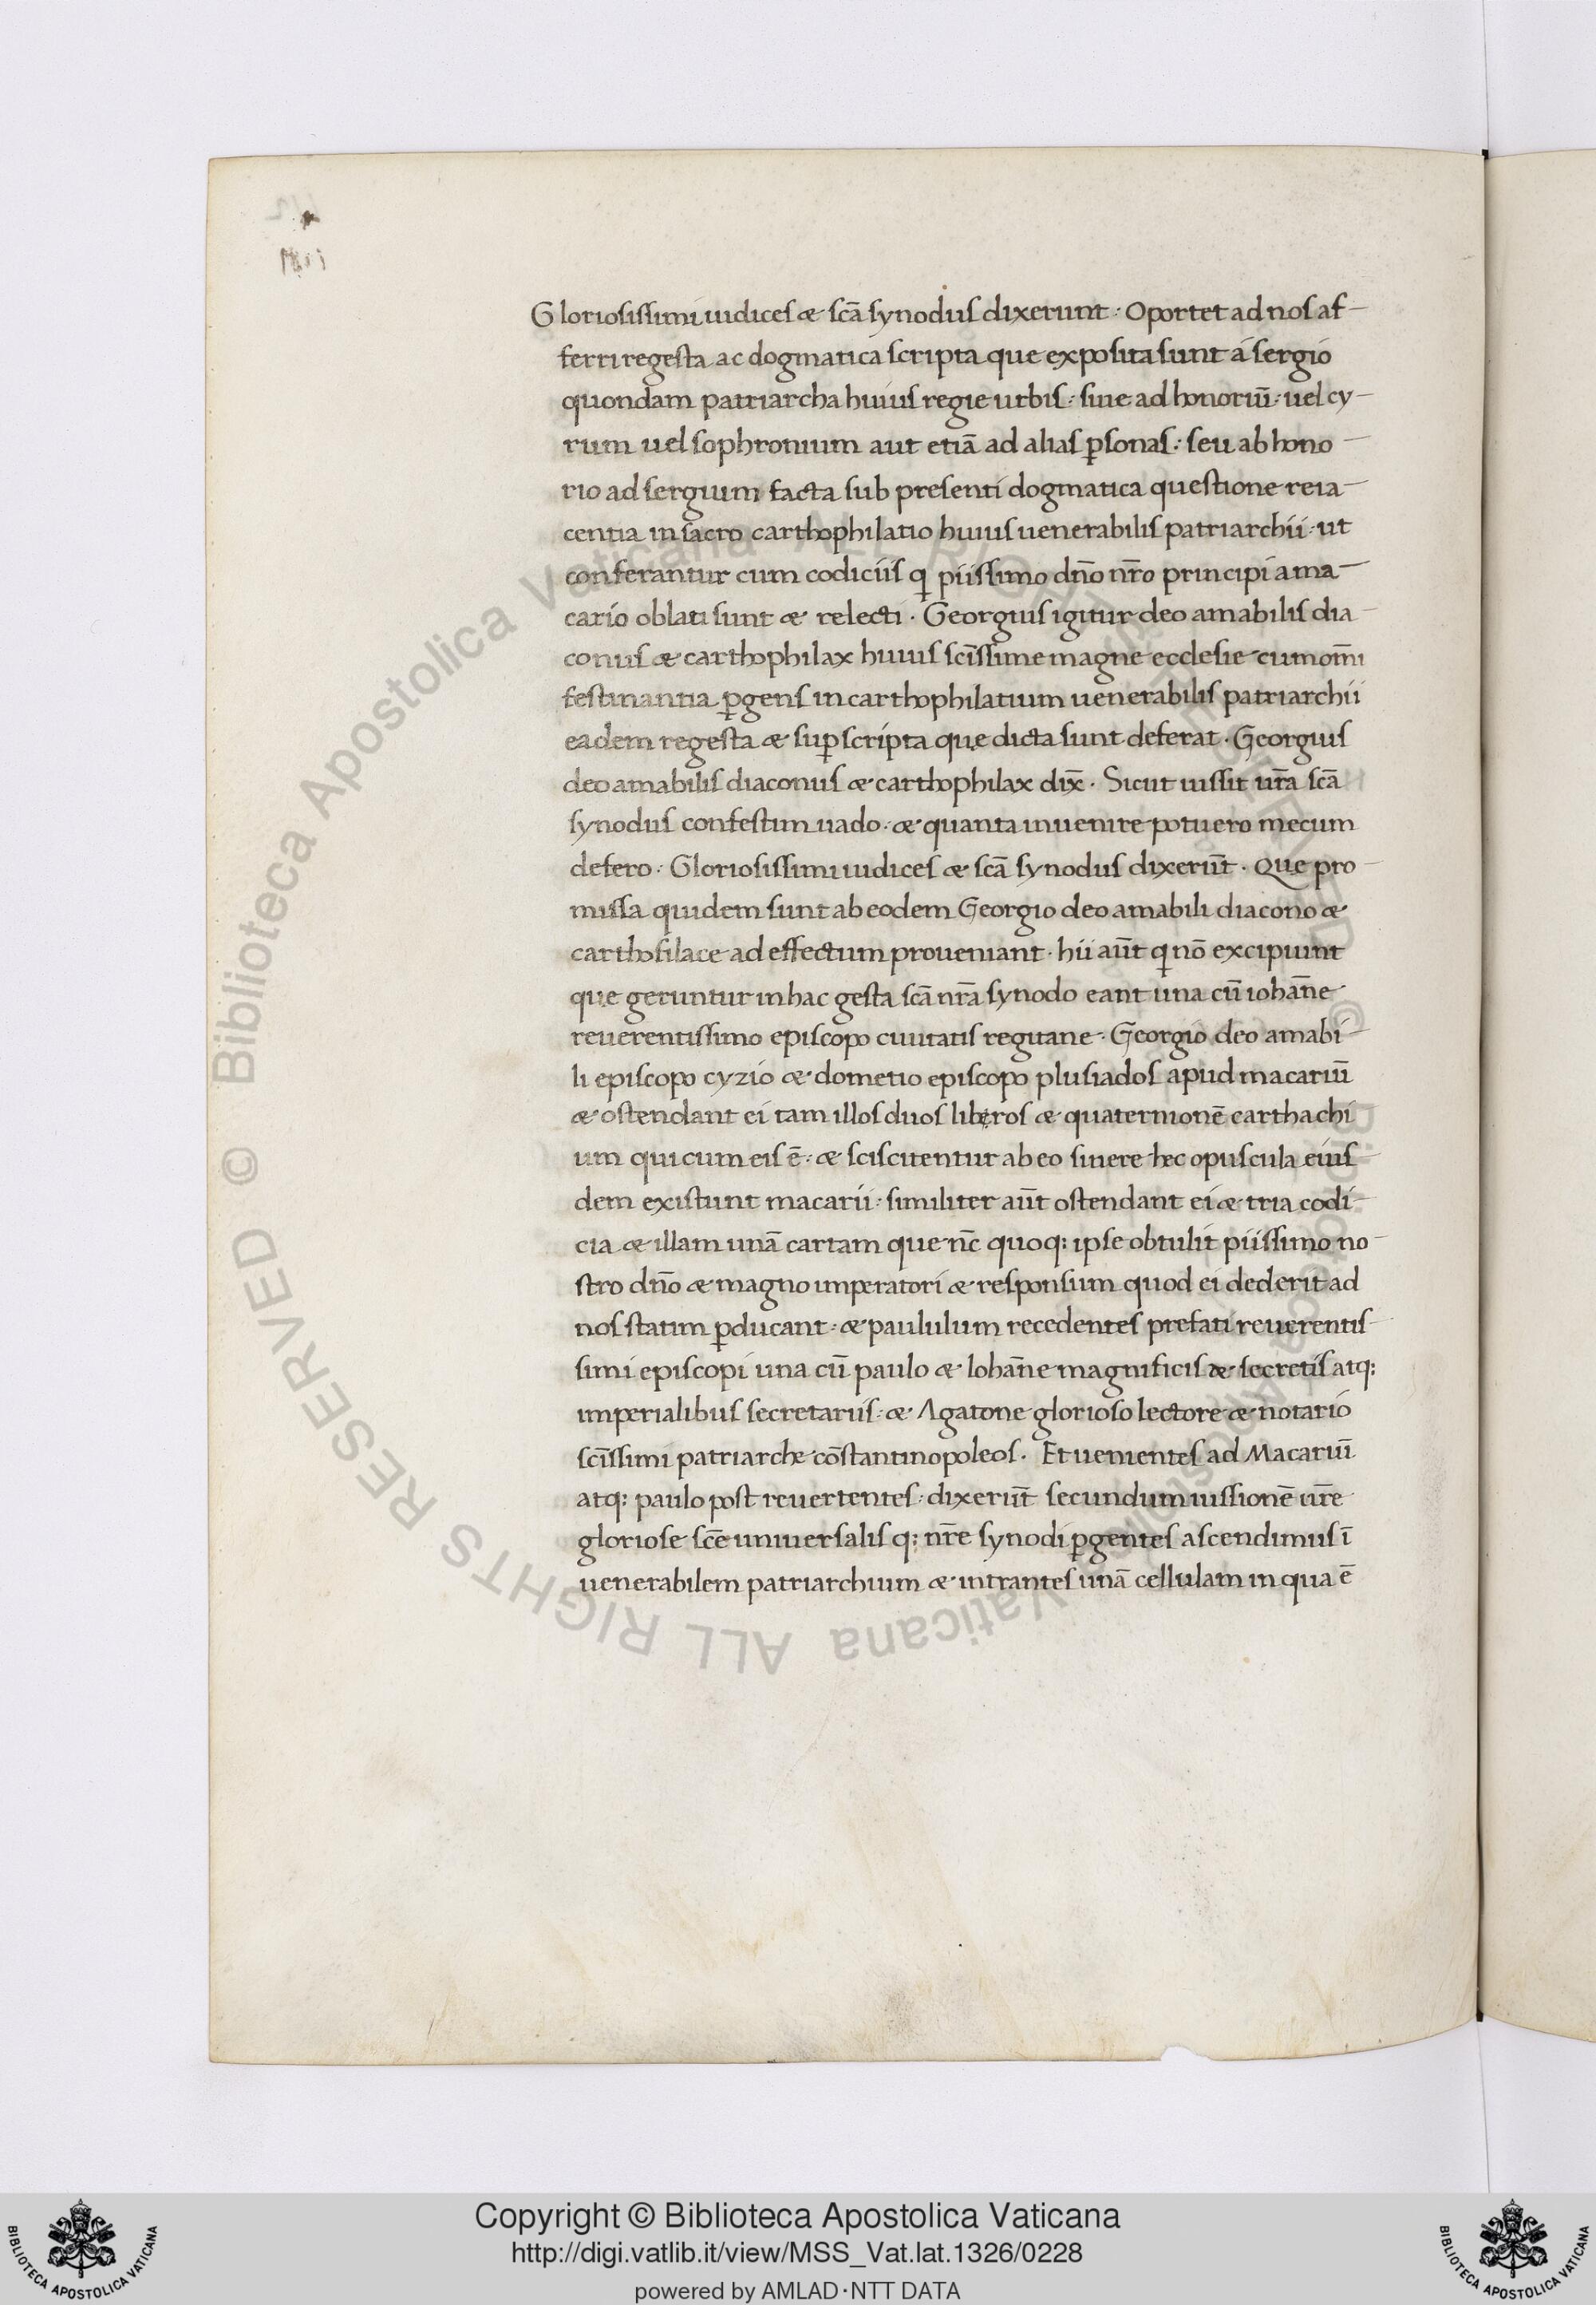 Gloriosissimi iudices & scā synodus dixerunt · Oportet ad nos af-
ferri regesta ac dogmatica scripta que exposita sunt a sergio
quondam patriarcha huius regie urbis : siue ad honoriū : uel cy-
rum uel sophronium aut etiā ad alias ꝑsonas : seu ab hono-
rio ad sergium facta sub presenti dogmatica questione reia-
centia in sacro carthophilatio huius uenerabilis patriarchii : ut
conferantur cum codiciis q piissimo dn̄o nr̄o principi a ma-
cario oblati sunt & relecti · Georgius igitur deo amabilis dia-
conus & carthophilax huius scīssime magne ecclesie cum om̄i
festinantia ꝑgens in carthophilatium uenerabilis patriarchii
eadem regesta & suꝑscripta que dicta sunt deferat · Georgius
deo amabilis diaconus & carthophilax dix̄ · Sicut iussit ur̄a scā
synodus confestim uado : & quanta inuenire potuero mecum
defero · Gloriosissimi iudices & scā synodus dixerūt · Que pro-
missa quidem sunt ab eodem Georgio deo amabili diacono &
carthofilace ad effectum proueniant · hii aūt q nō excipiunt
que geruntur in hac gesta scā nr̄a synodo eant una cū iohāne
reuerentissimo episcopo ciuitatis regitane · Georgio deo amabi-
li episcopo cyzio & dometio episcopo plusiados apud macariū
& ostendant ei tam illos duos liberos & quaternionē carthachi
um qui cum eis ē : & sciscitentur ab eo si uere hec opuscula eius-
dem existunt macarii : similiter aūt ostendant ei & tria codi-
cia & illam unā cartam que nc̄ quoq: ipse obtulit piissimo no-
stro dn̄o & magno imperatori & responsum quod ei dederit ad
nos statim ꝑducant : & paululum recedentes prefati reuerentis-
simi episcopi una cū paulo & Iohāne magnificis & secretis atq:
imperialibus secretariis : & Agatone glorioso lectore & notario
scīssimi patriarche cōstantinopoleos · Et uenientes ad Macariū
atq: paulo post reuertentes : dixerūt secundum iussionē ur̄e
gloriose scē uniuersalis q: nr̄e synodi ꝑgentes ascendimus ī
uenerabilem patriarchium & intrantes unā cellulam in qua ē
© Biblioteca Apostolica Vaticana ALL RIGHTS RESERVED
Copyright © Biblioteca Apostolica Vaticana
http://digi.vatlib.it/view/MSS_Vat.lat.1326/0228
powered by AMLAD·NTT DATA
BIBLIOTECA APOSTOLICA VATICANA
BIBLIOTECA APOSTOLICA VATICANA